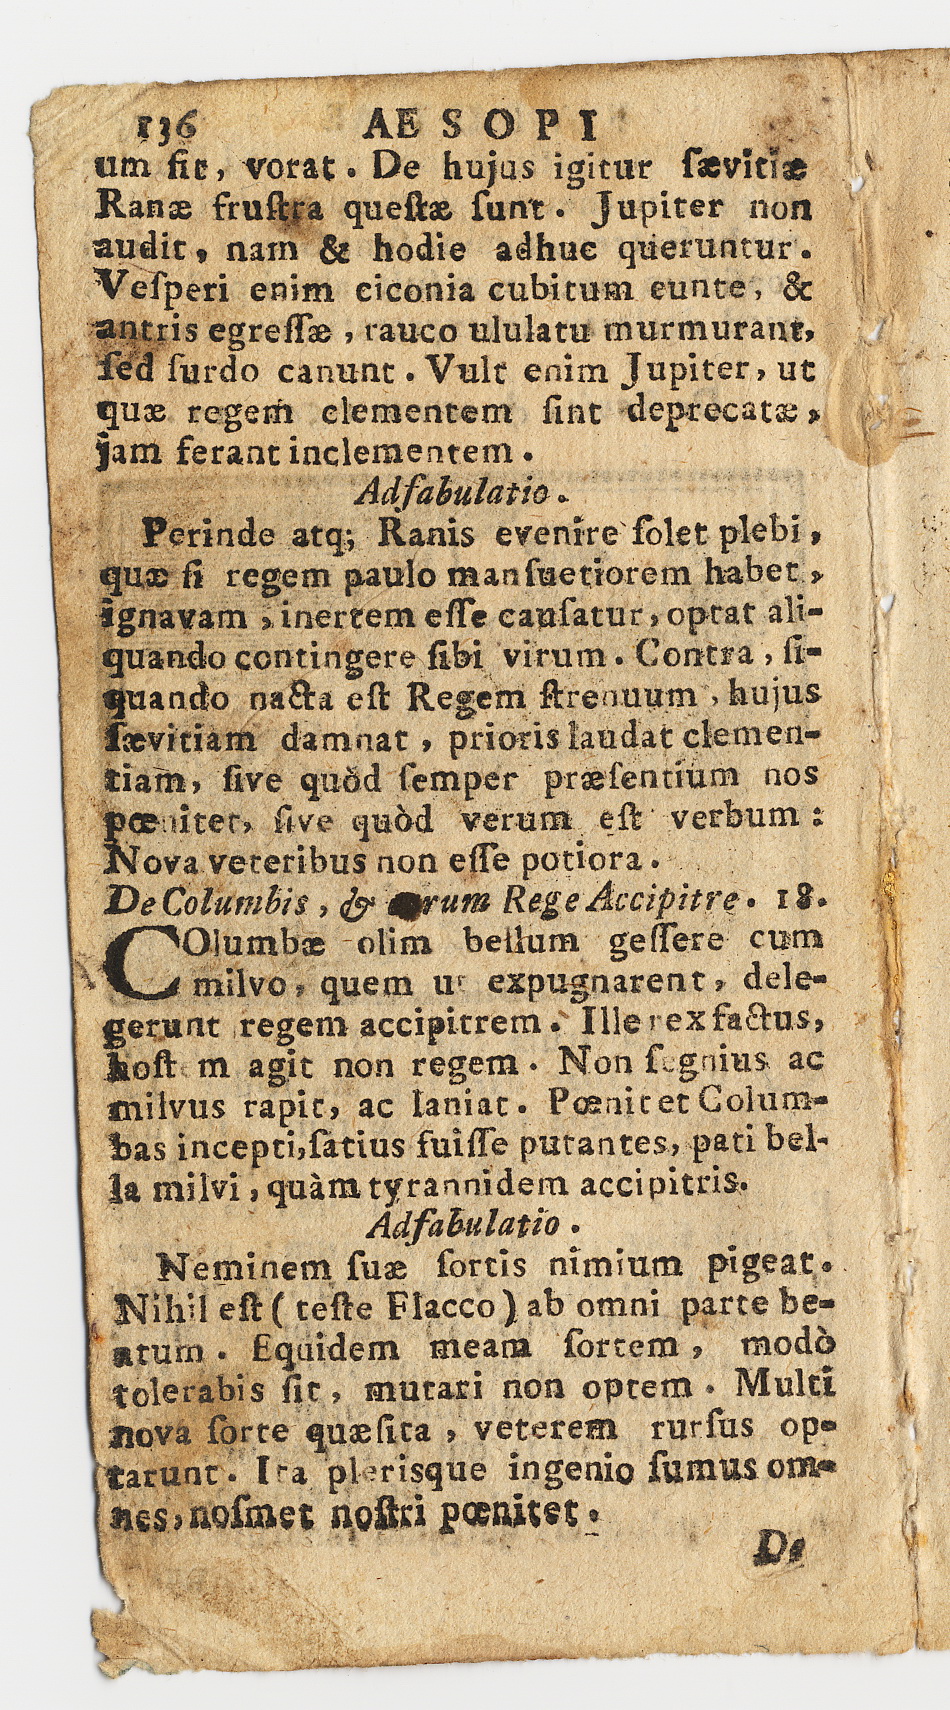 136 AESOPI
um sit, vorat. De hujus igitur sævitiæ
Ranæ frustra questæ sunt. Jupiter non
audit, nam & hodie adhuc queruntur.
Vesperi enim ciconia cubitum eunte, &
antris egressæ, rauco ululatu murmurant,
sed surdo canunt. Vult enim Jupiter, ut
quæ regem clementem sint deprecatæ,
jam ferant inclementem.
Adfabulatio.
Perinde atq; Ranis evenire solet plebi,
quæ si regem paulo mansuetiorem habet,
ignavam, inertem esse causatur, optat ali-
quando contingere sibi virum. Contra, si-
quando nacta est Regem strenuum, hujus
sævitiam damnat, prioris laudat clemen-
tiam, sive quòd semper præsentium nos
pœnitet, sive quòd verum est verbum:
Nova veteribus non esse potiora.
De Columbis, & earum Rege Accipitre. 18.
COlumbæ olim bellum gessere cum
milvo, quem ut expugnarent, dele-
gerunt regem accipitrem. Ille rex factus,
hostem agit non regem. Non segnius ac
milvus rapit, ac laniat. Pœnitet Colum-
bas incepti, satius fuisse putantes, pati bel-
la milvi, quàm tyrannidem accipitris.
Adfabulatio.
Neminem suæ sortis nimium pigeat.
Nihil est (teste Flacco) ab omni parte be-
atum. Equidem meam sortem, modò
tolerabis sit, mutari non optem. Multi
nova sorte quæsita, veterem rursus op-
tarunt. Ita plerisque ingenio sumus om-
nes, nosmet nostri pœnitet.
De